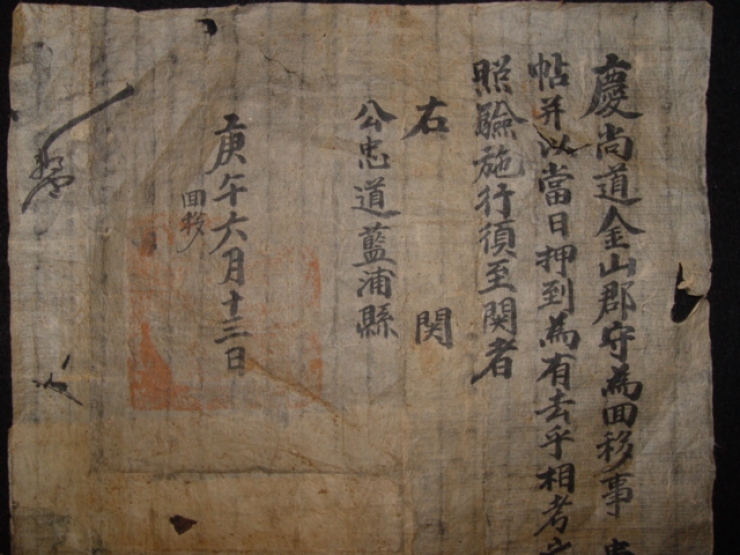 慶尚道金山郡守為回移事
帖并以當日押到為有去乎相考
照驗施行須至関者
右関
公忠道藍浦縣
庚午六月十三日
回移